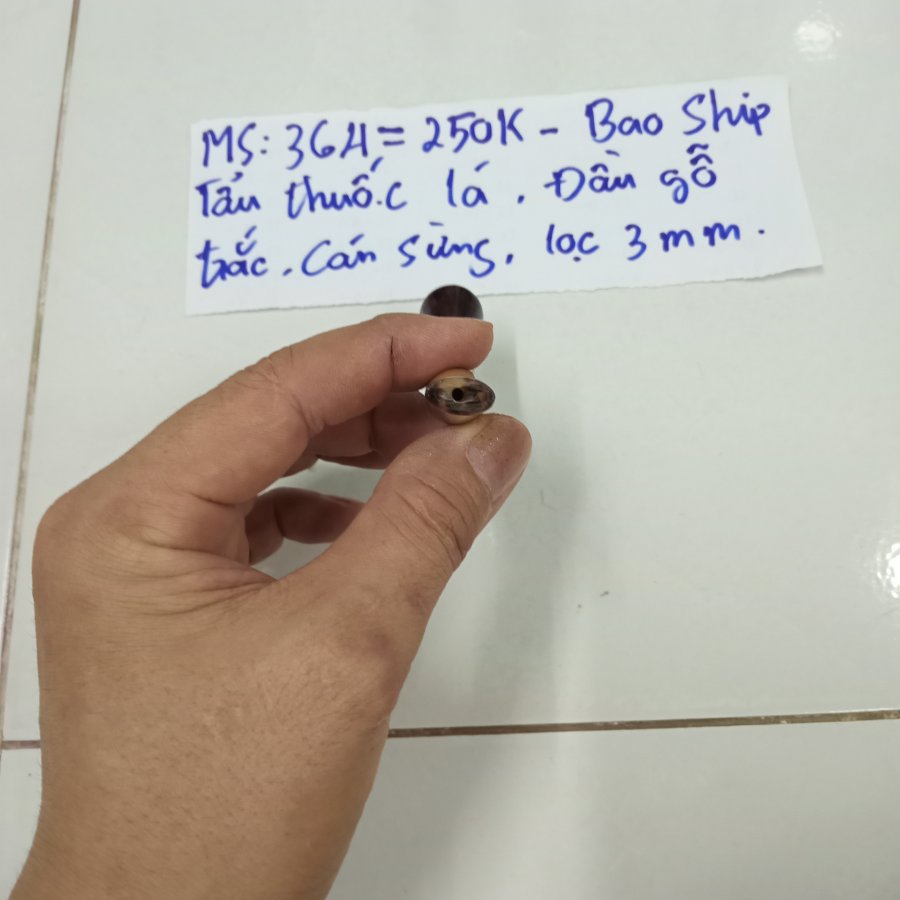 MS: 36H = 250K - Bao Ship
Tẩu thuốc lá. Đầu gỗ
trắc. Cán sừng. lọc 3mm.